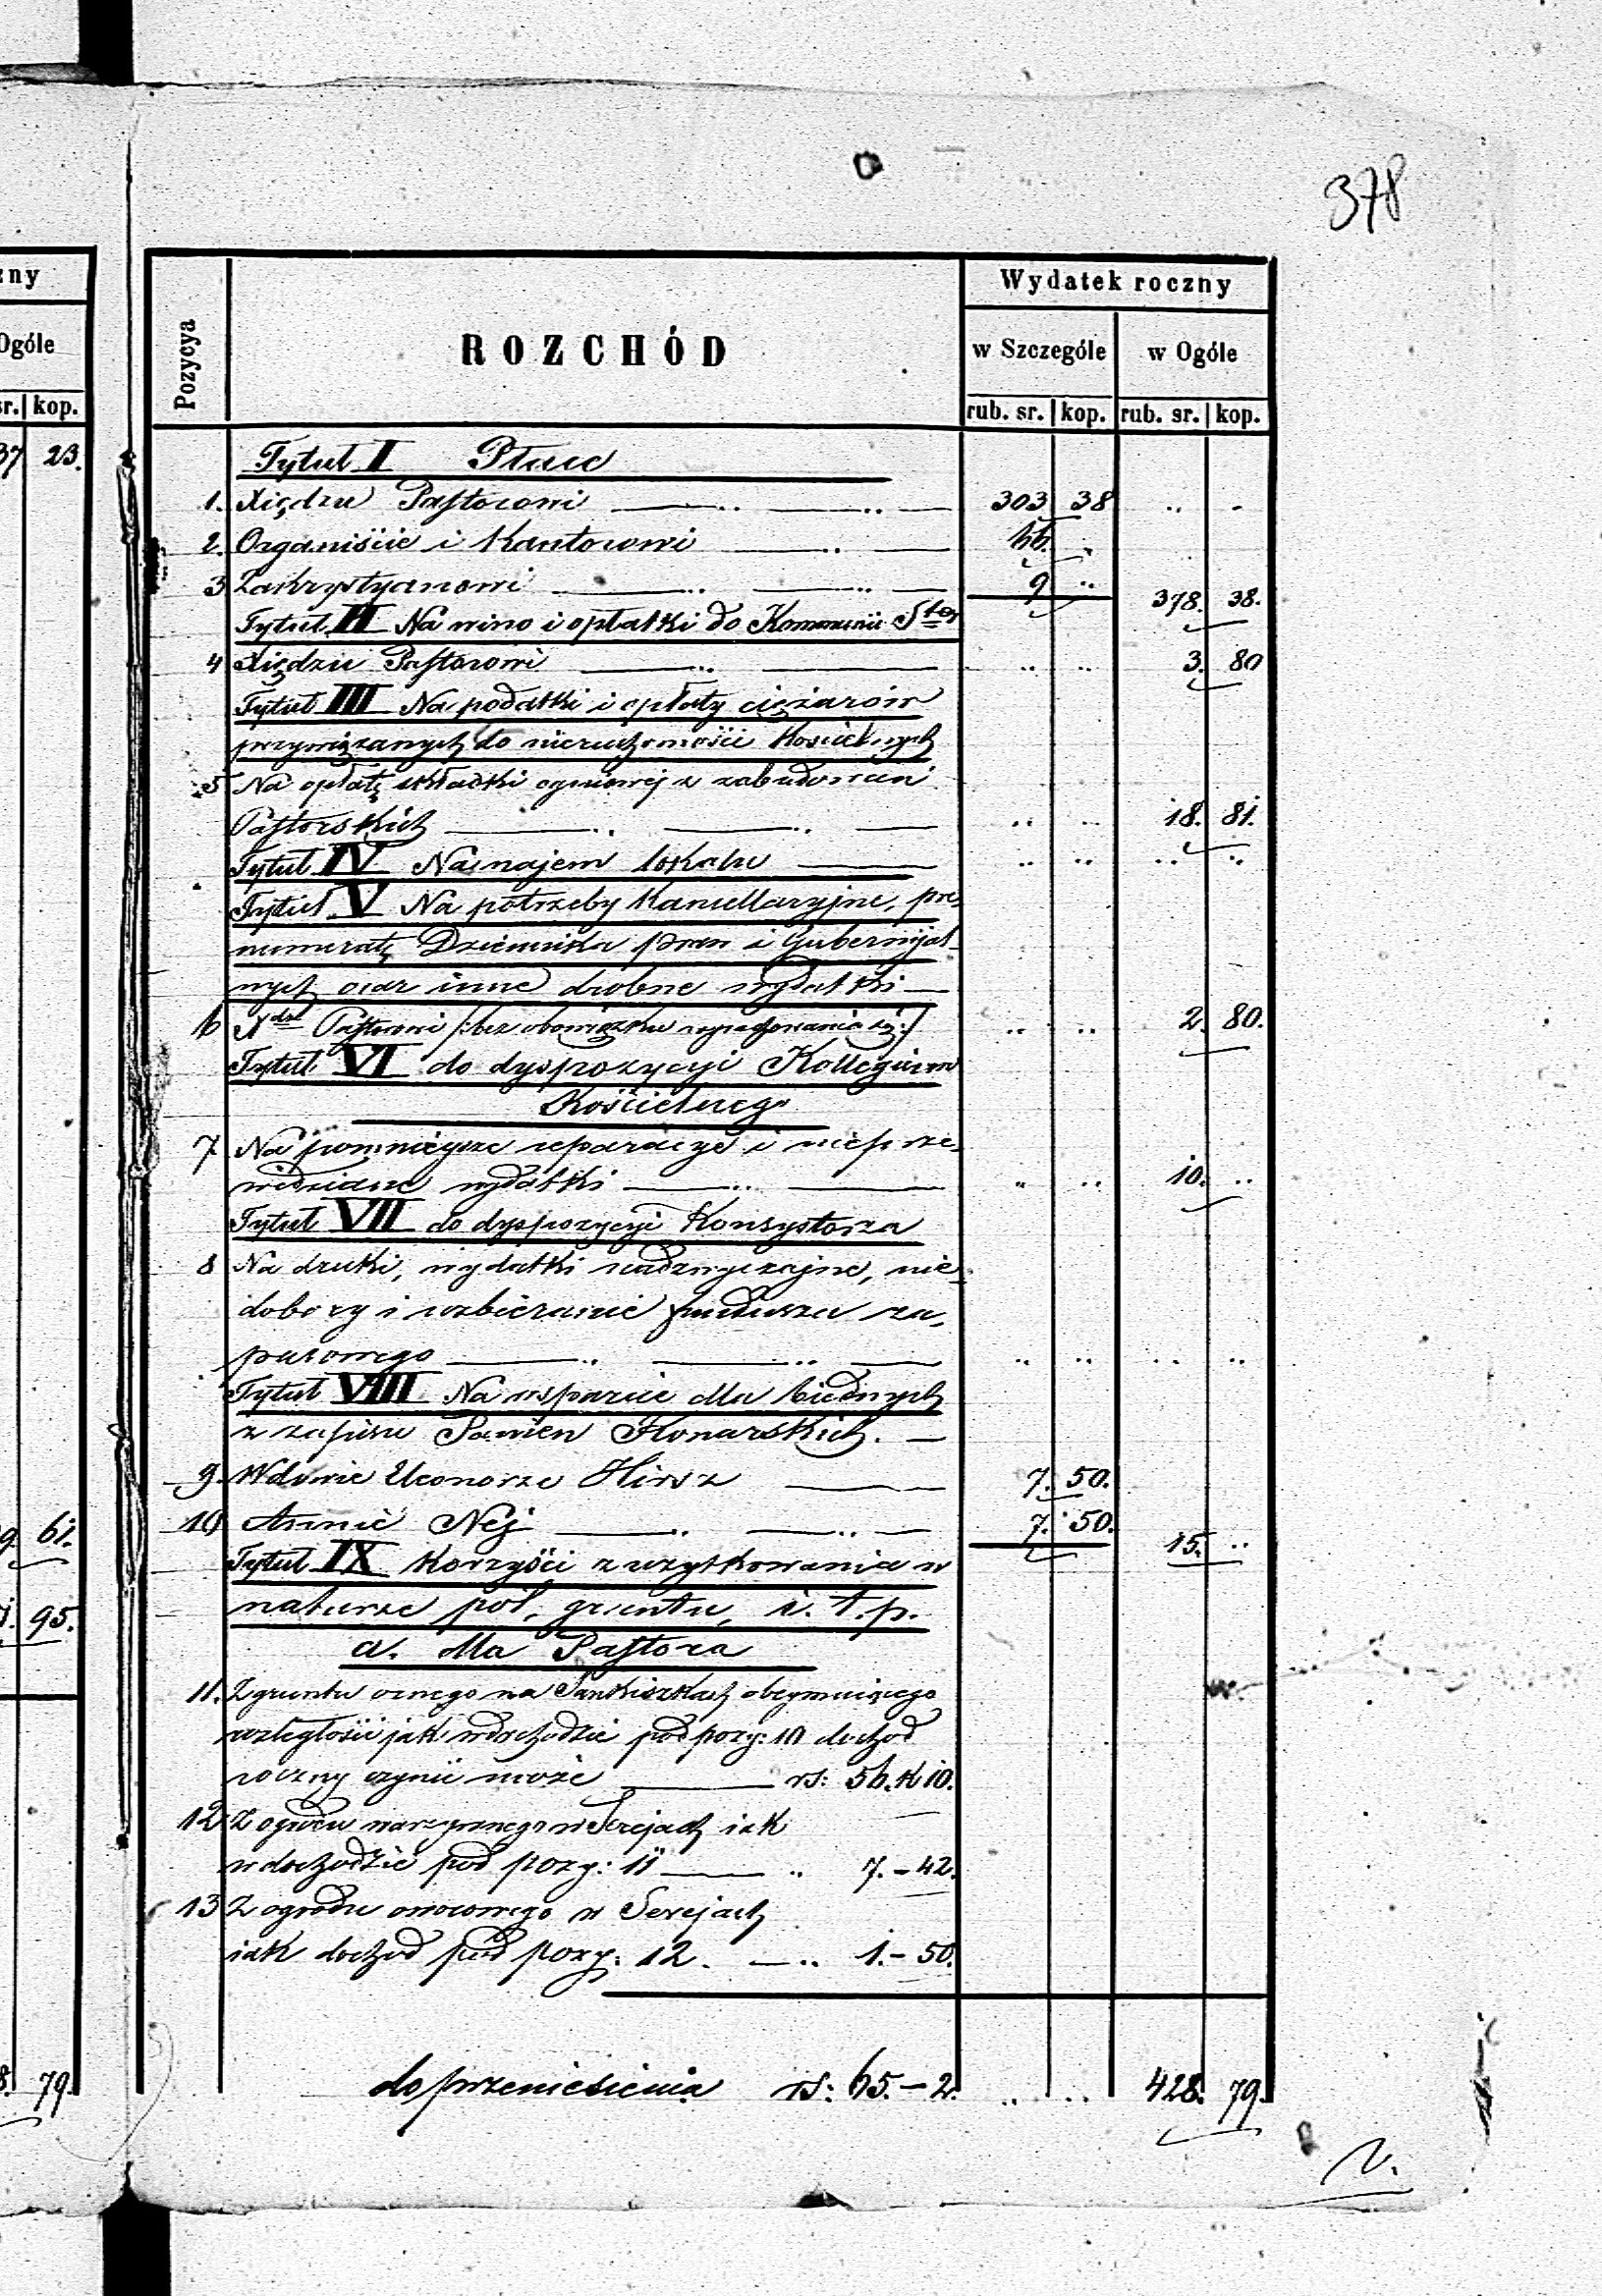 378
zny
Ogóle
sr. kop.
37 23.
9. 61.
95.
8. 79.
Pozycya ROZCHÓD Wydatek roczny
w Szczególe w Ogóle
rub. sr. kop. rub. sr. kop.
Tytuł I Płace
1. Xiędzu Pastorowi 303 38 .. -
2. Organiście i Kantorowi 66. ..
3 Zakrystyanowi 9 .. 378. 38.
Tytuł II Na wino i opłatki do Kommunii Stej
4 Xiędzu Pastorowi .. .. 3. 80
Tytuł III Na podatki i opłaty ciężarów
przywiązanych do nieruchomości Kościelnych
5 Na opłatę składki ogniowej z zabudowań
Pastorskich .. .. 18. 81.
Tytuł IV Na najem lokalu .. .. .. ..
Tytuł V Na potrzeby Kancellaryjne, pre-
numeratę Dziennika praw i Gubernijal-
nych oraz inne drobne wydatki
6 Xdzu Pastorowi /:bez obowiązku wyrachowania się:/ .. .. 2. 80.
Tytuł VI do dyspozycyi Kollegium
Kościelnego
7 Na pomniejsze reparacye i nieprze-
widziane wydatki .. .. 10. ..
Tytuł VII do dyspozycyi Konsystorza
8 Na druki, wydatki nadzwyczajne, nie-
dobory i uzbieranie funduszu za-
pasowego .. .. .. ..
Tytuł VIII Na wsparcie dla biednych
z zapisu Panien Flonarskich.
9. Wdowie Eleonorze Hirsz 7. 50.
10 Annie Nej 7. 50. 15. ..
Tytuł IX Korzyści z użytkowania w
naturze pól, gruntu, i. t. p.
a. dla Pastora
11. Z gruntu ornego na Sankiszkach obejmującego
rozległości jak w dochodzie pod pozy: 10 dochód
roczny czynić może rs: 56. k 10.
12 Z ogrodu warzywnego w Serejach iak
w dochodzie pod pozy: 11 .. 7. - 42.
13 Z ogrodu owocowego w Serejach
iak dochód pod pozy: 12. .. 1. - 50.
do przeniesienia rs: 65. - 2. .. .. 428. 79.